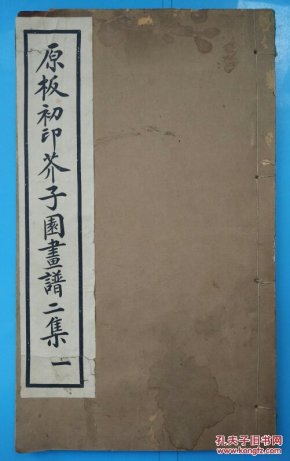 原板初印芥子園畫譜二集 一
孔夫子旧书网
www.kongfz.com